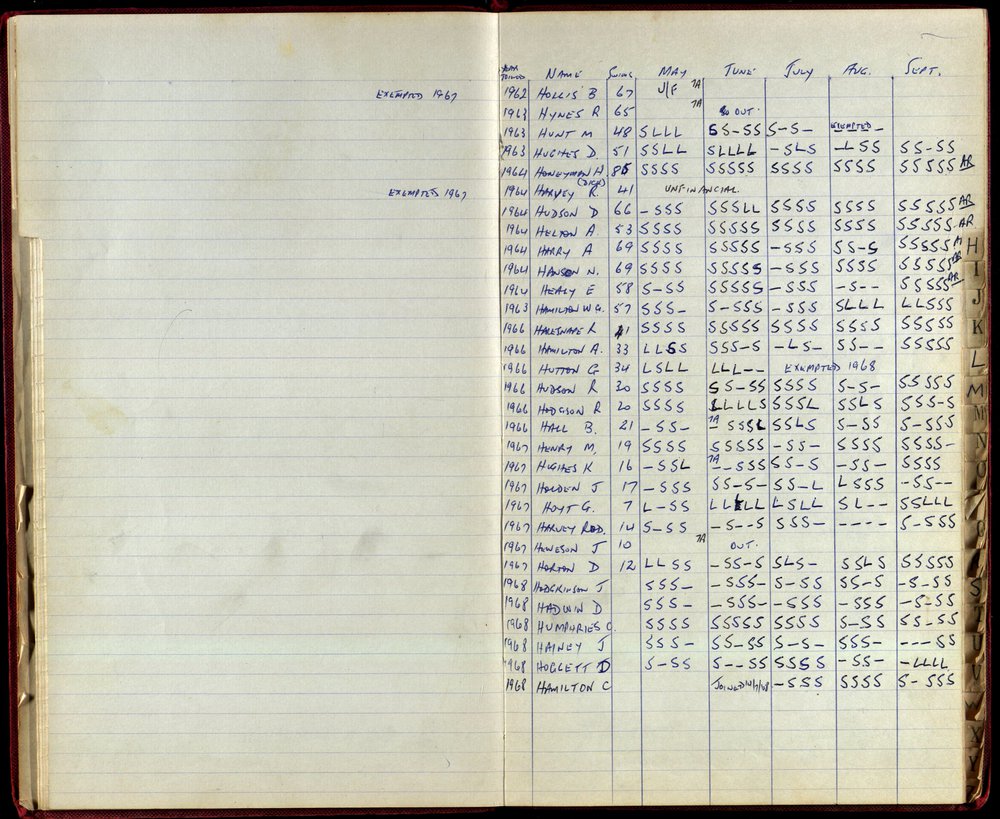 YEAR JOINED NAME SWIMS MAY JUNE JULY AUG. SEPT.
EXEMPTED 1967 1962 HOLLIS B 67 U/F TA
1963 HYNES R 65 TA OUT.
1963 HUNT M 48 SLLL SS-SS S-S- EXEMPTED -
1963 HUGHES D. 51 SSLL SLLLL -SLS -LSS SS-SS
1964 HONEYMAN H. 85 SSSS SSSSS SSSS SSSS SSSSS AR
EXEMPTED 1967 1964 HARVEY R. (DICK) 41 UNFINANCIAL.
1964 HUDSON D 66 -SSS SSSLL SSSS SSSS SSSSS AR
1964 HELTON A 53 SSSS SSSSS SSSS SSSS SSSSS AR
1964 HARRY A 69 SSSS SSSSS -SSS SS-S SSSSS H
1964 HANSON N. 69 SSSS SSSSS -SSS SSSS SSSSS AR I
1964 HEALY E 58 S-SS SSSSS -SSS -S-- SSSSS AR J
1963 HAMILTON W.G. 57 SSS- S-SSS -SSS SLLL LLSSS
1966 HALESNAPE R 41 SSSS SSSSS SSSS SSSS SSSSS K
1966 HAMILTON A. 33 LLSS SSS-S -LS- SS-- SSSSS
1966 HUTTON G 34 LSLL LLL-- EXEMPTED 1968 L
1966 HUDSON R 20 SSSS SS-SS SSSS S-S- SSSSS M
1966 HODGSON R 20 SSSS LLLLS SSSL SSLS SSS-S
1966 HALL B. 21 -SS- TA -SSSL SSLS S-SS S-SSS
1967 HENRY M. 19 SSSS SSSSS -SS- SSSS SSSS- N
1967 HUGHES K 16 -SSL TA --SSS SS-S -SS- SSSS O
1967 HOLDEN J 17 -SSS SS-S- SS-L LSSS -SS--
1967 HOYT G. 7 L-SS LLLLL LSLL SL-- SSLLL
1967 HARVEY ROD. 14 S-SS -S--S SSS- ---- S-SSS
1967 HEWESON J 10 TA OUT.
1967 HORTON D 12 LLSS -SS-S SLS- SSLS SSSSS
1968 HODGKINSON J SSS- -SSS- S-SS SS-S -S-SS S
1968 HADWIN D SSS- -SSS- -SSS -SSS -S-SS
1968 HUMPHRIES C. SSSS SSSSS SSSS S-SS SS-SS
1968 HAINEY J SSS- SS-SS S-S- SSS- ---SS U
1968 HOGGETT D S-SS S--SS SSSS -SS- -LLLL V
1968 HAMILTON C JOINED 10/7/68 -SSS SSSS S-SSS
W
X
Y